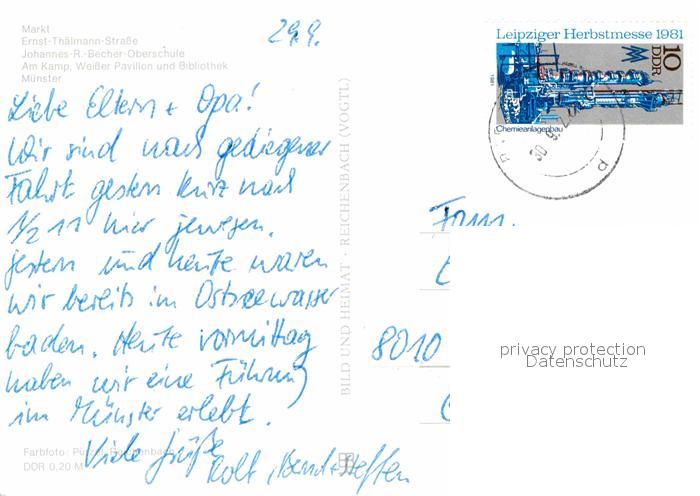 Markt
Ernst-Thälmann-Straße
Johannes-R.-Becher-Oberschule
Am Kamp, Weißer Pavillon und Bibliothek
Münster
29.9.
Liebe Eltern + Opa!
Wir sind nach gediegener
Fahrt gestern kurz nach
1/2 11 hier gewesen.
Gestern und heute waren
wir bereits im Ostseewasser
baden. Heute vormittag
haben wir eine Führung
im Münster erlebt.
Viele Grüße
Rolf, Bernd + Steffen
Farbfoto: Reichenbach
DDR 0,20 M
BILD UND HEIMAT · REICHENBACH (VOGTL)
Leipziger Herbstmesse 1981
10
DDR
1981
Chemieanlagenbau
Fam.
8010
privacy protection
Datenschutz